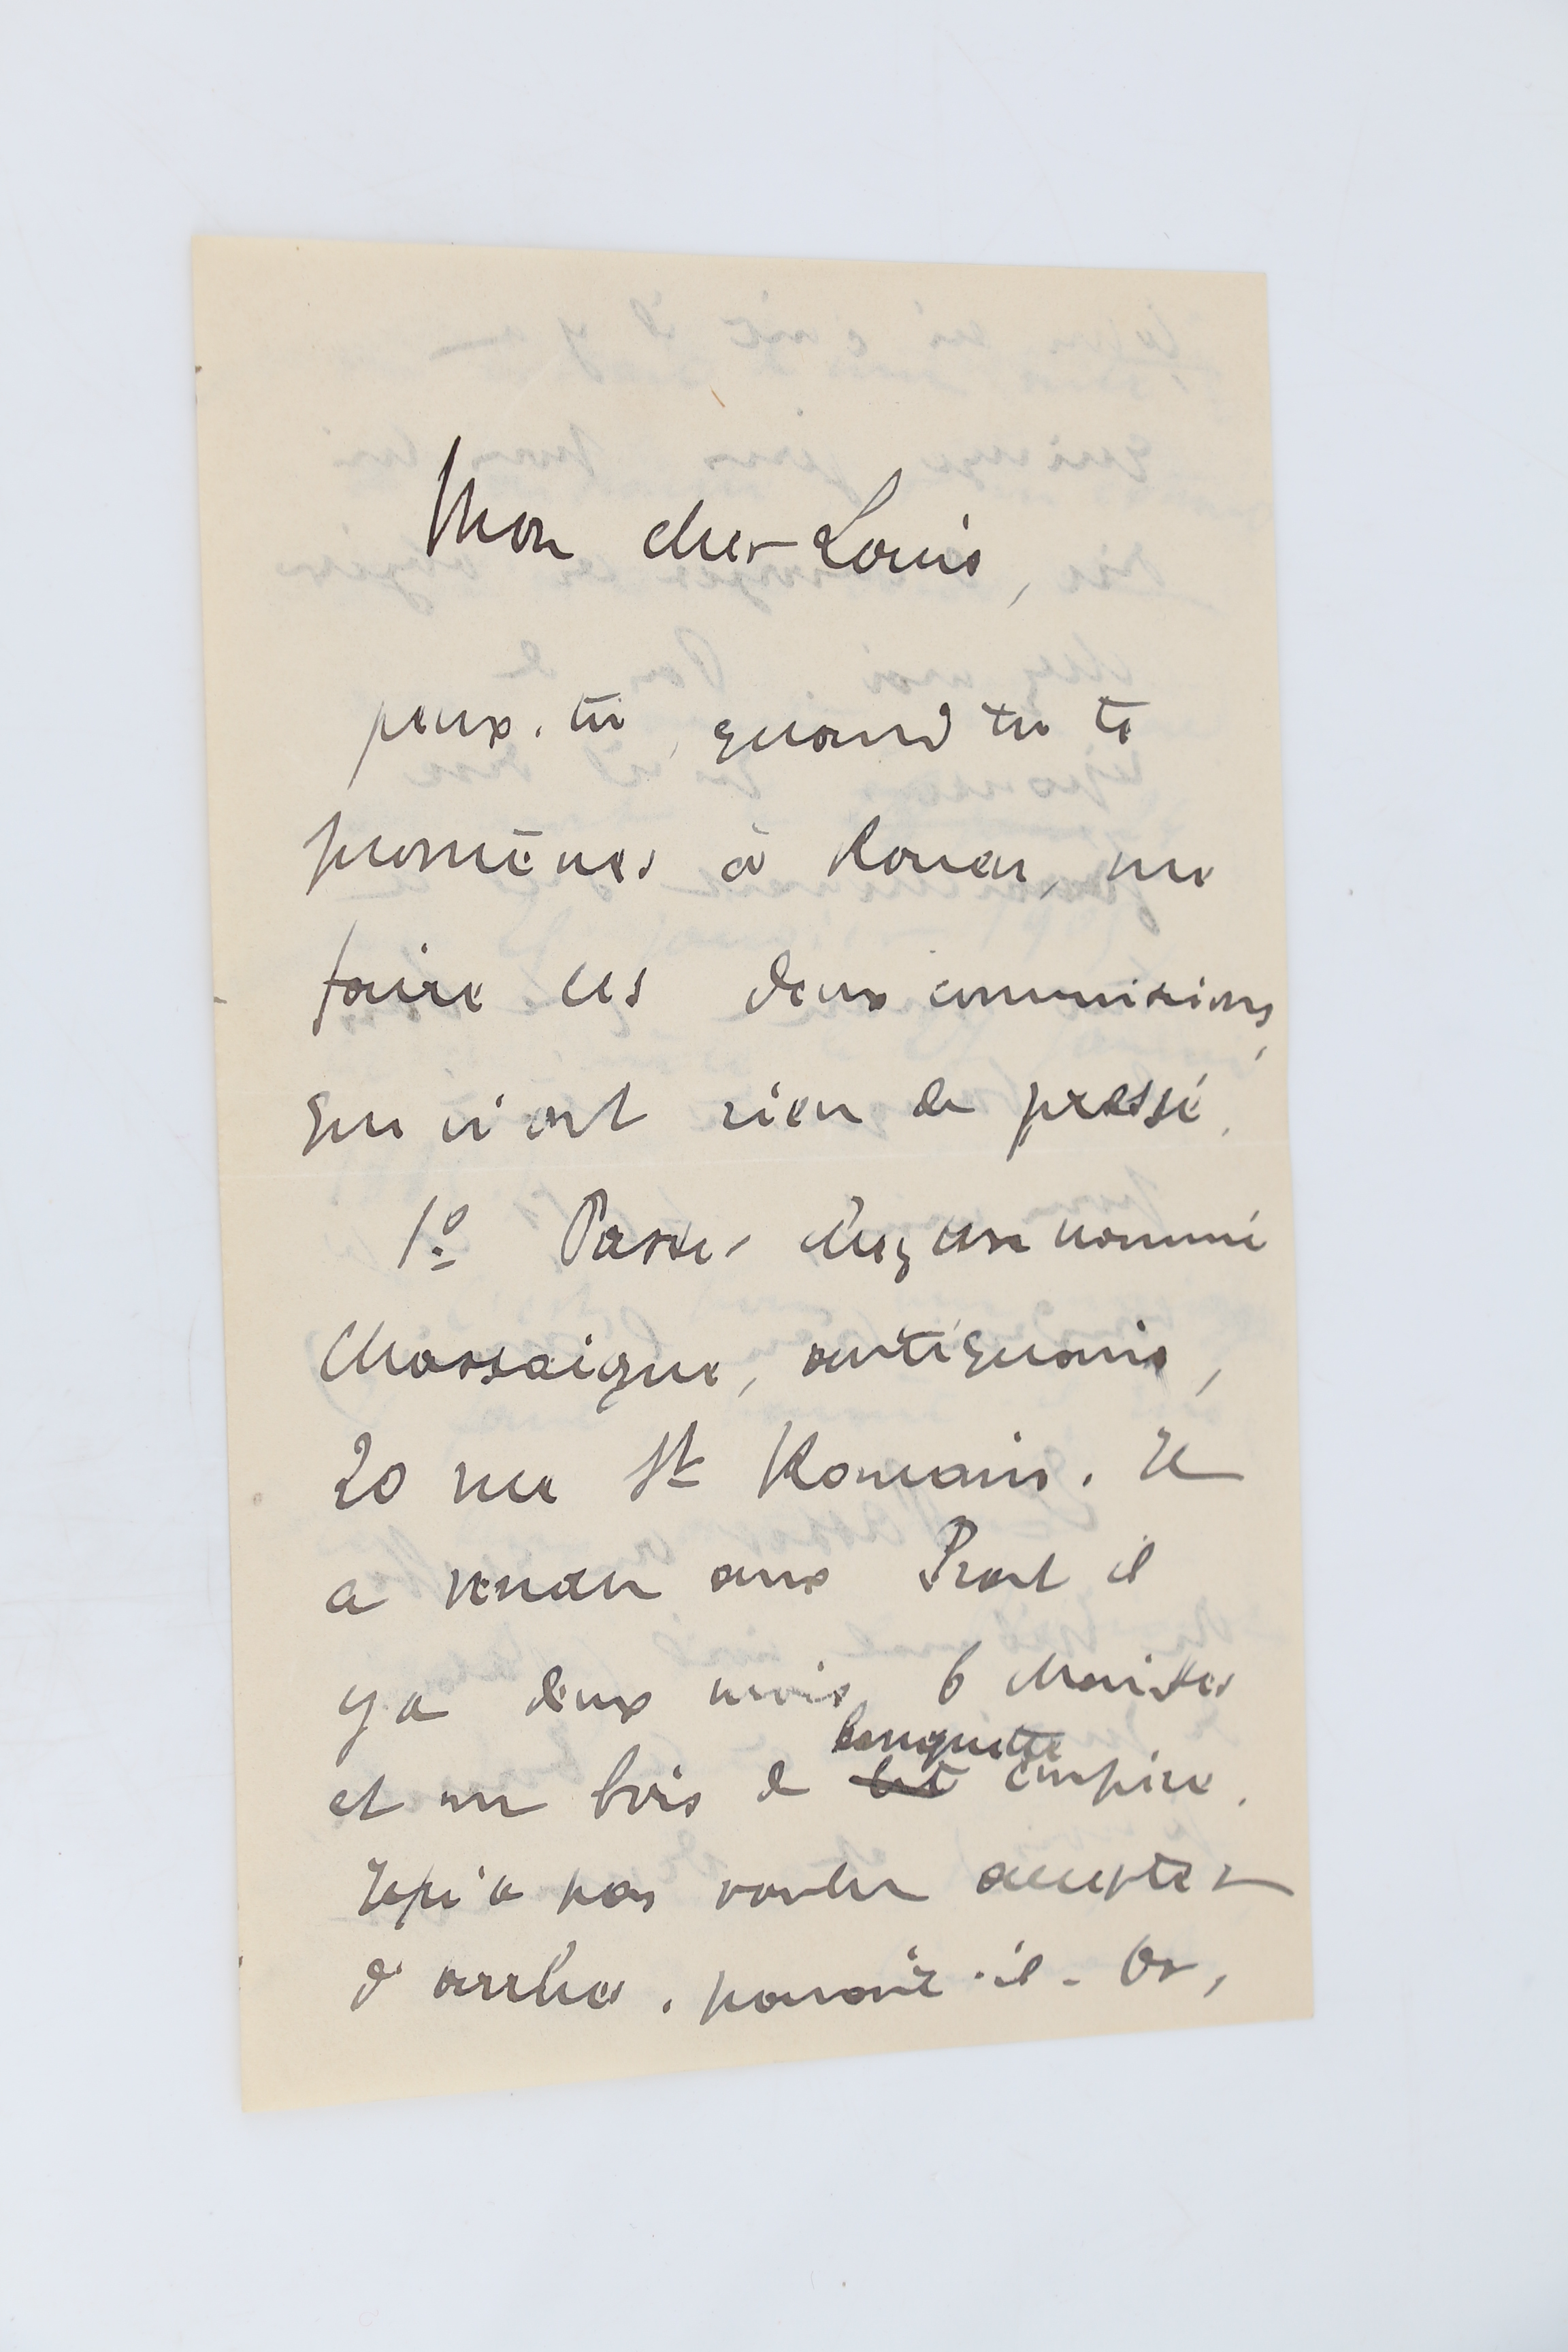 Mon cher Louis,
peux-tu, quand tu te
promènes à Rouen, me
faire ces deux commissions,
qui n'ont rien de pressé.
1º Passer chez un nommé
Chassaigne, antiquaire,
20 rue St Romain. Il
a vendu aux Prat il
y a deux mois, 6 chaises
et un bois de banquette empire.
Il n'a pas voulu accepter
d'arrhes, paraît-il. Or,